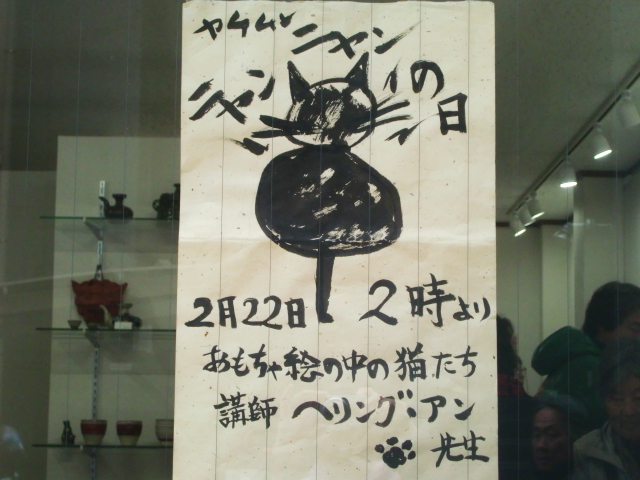 ヤムヤム
ニャン
ニャン
の
日
2月22日 2時より
おもちゃ絵の中の猫たち
講師 ヘリング・アン
先生